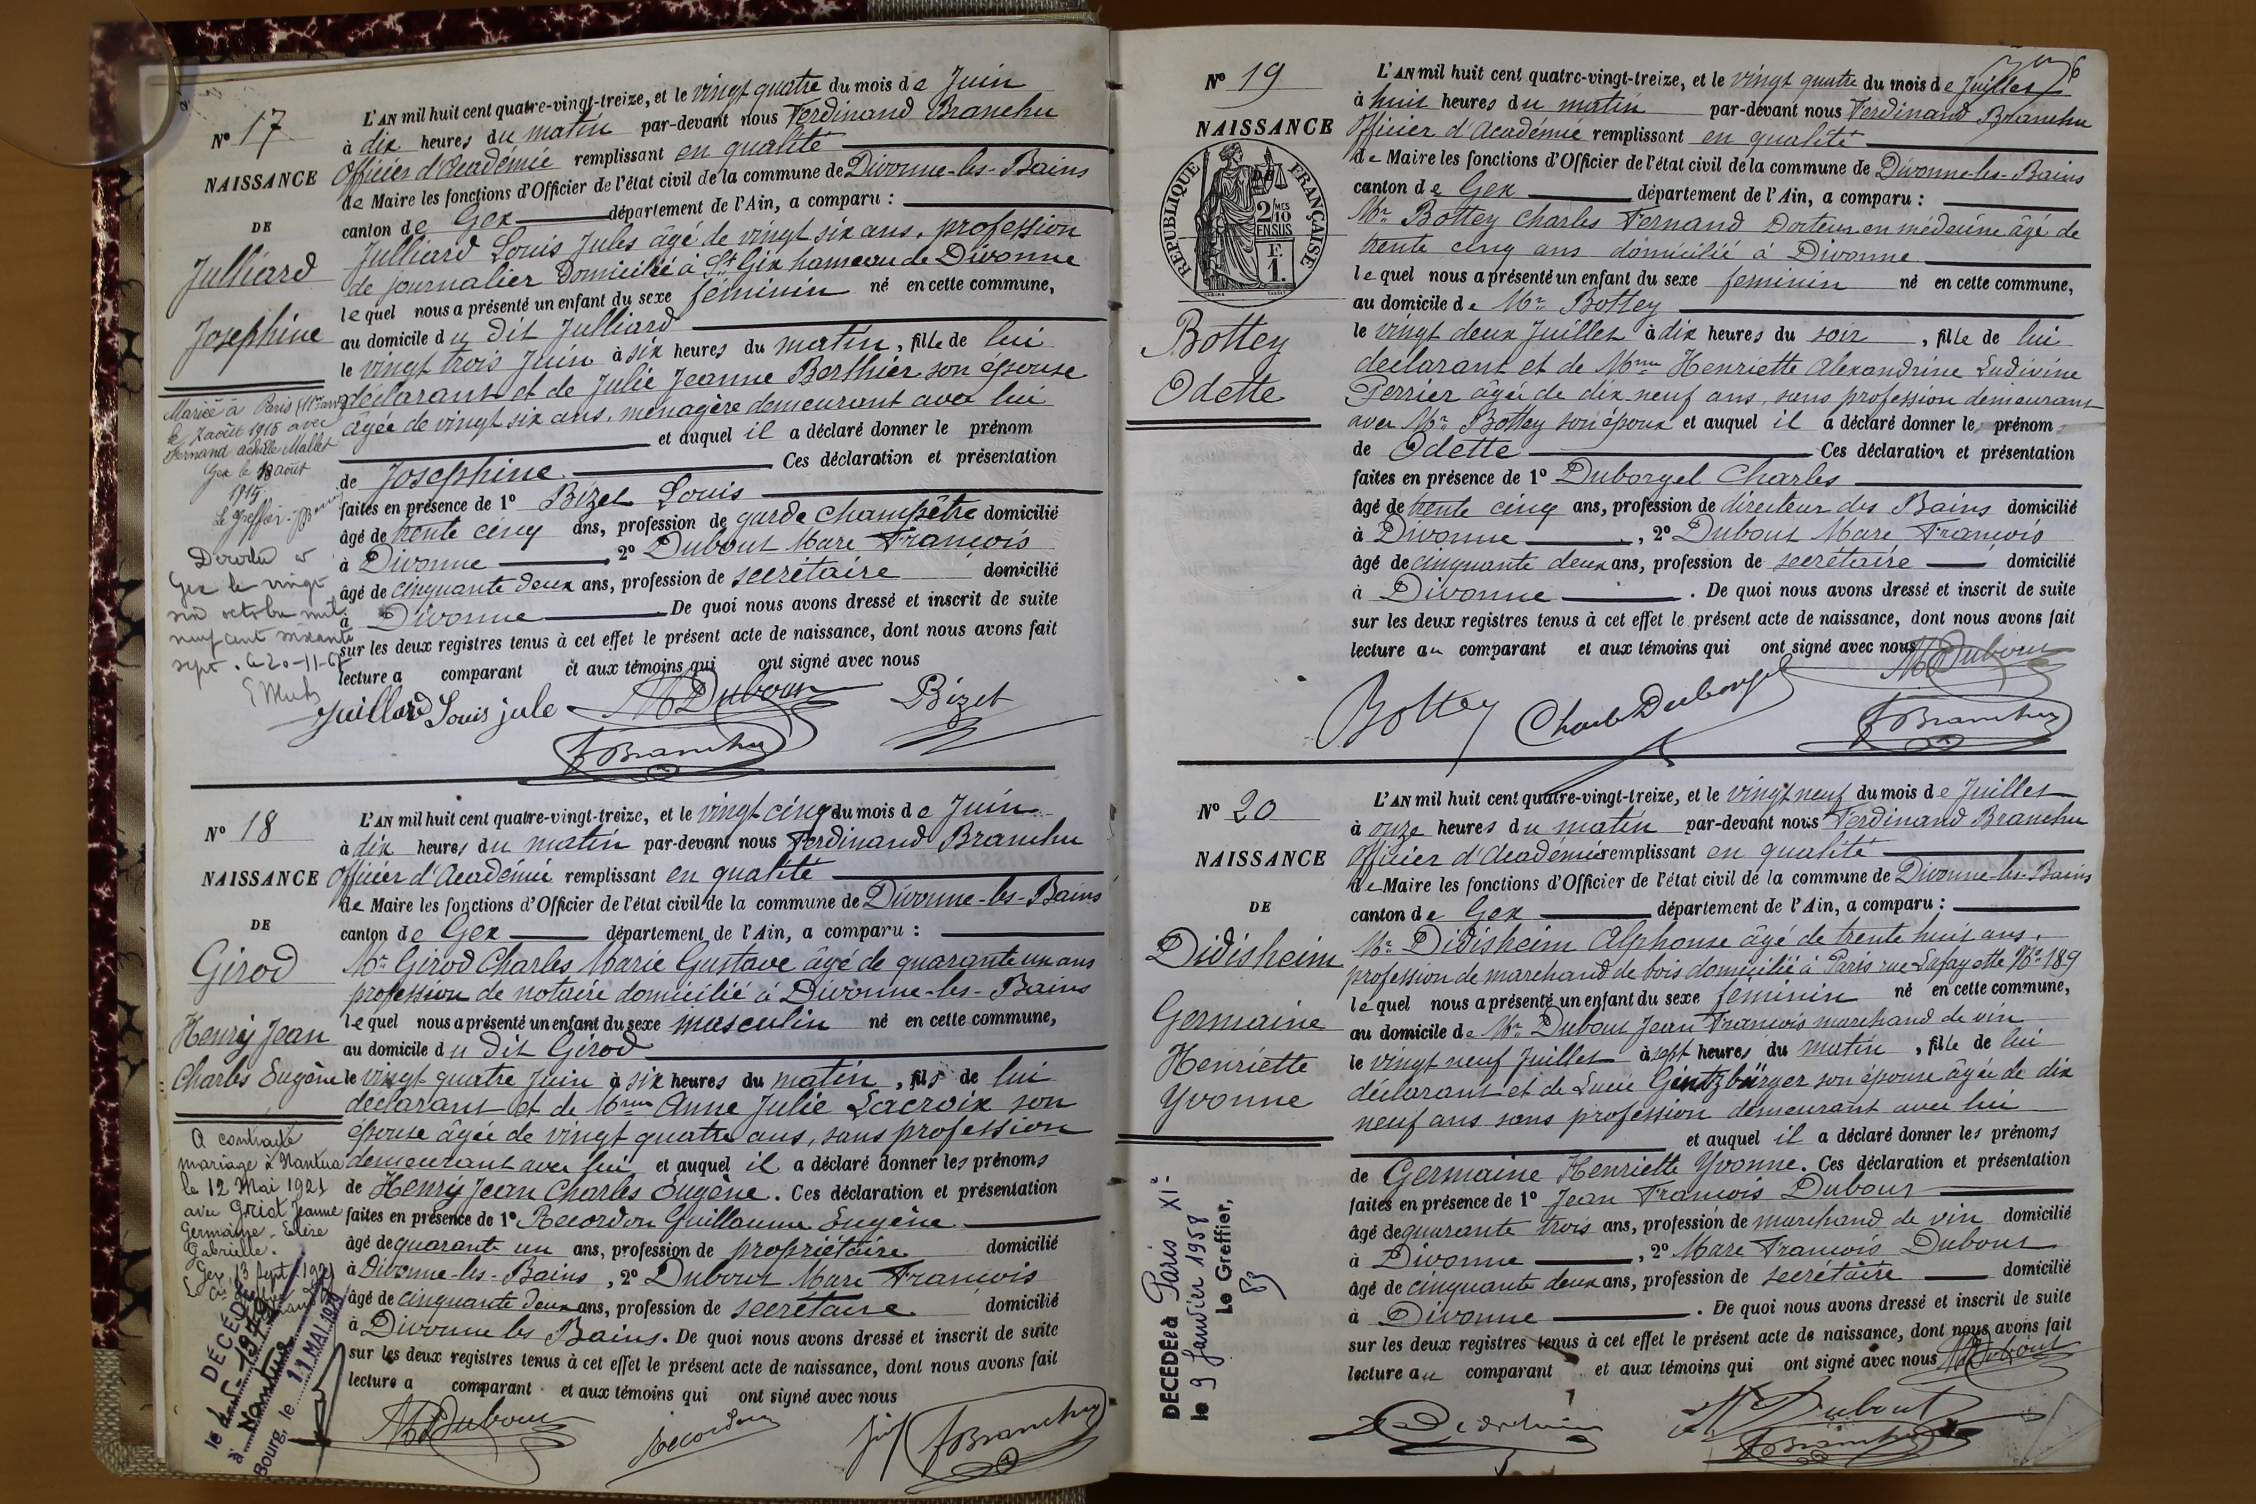 N° 17
NAISSANCE
DE
Julliard
Josephine
Mariée à Paris 11e arr
le 7 août 1915 avec
Fernand Achille Mallet
Gex le 18 août
1915
Le Greffier
Décédée à
Gex le vingt
six octobre mil
neuf cent soixante
sept. Le 20-11-67
L'AN mil huit cent quatre-vingt-treize, et le vingt quatre du mois de Juin
à dix heures du matin par-devant nous Ferdinand Branchu
Officier d'Académie remplissant en qualité
de Maire les fonctions d'Officier de l'état civil de la commune de Divonne-les-Bains
canton de Gex département de l'Ain, a comparu :
Julliard Louis Jules âgé de vingt six ans, profession
de journalier domicilié à St Gix hameau de Divonne
lequel nous a présenté un enfant du sexe féminin né en cette commune,
au domicile du dit Julliard
le vingt trois Juin à six heures du matin, fille de lui
déclarant et de Julie Jeanne Berthier son épouse
âgée de vingt six ans, ménagère demeurant avec lui
et auquel il a déclaré donner le prénom
de Josephine. Ces déclaration et présentation
faites en présence de 1° Bizet Louis
âgé de trente cinq ans, profession de garde champêtre domicilié
à Divonne, 2° Dubout Marc François
âgé de cinquante deux ans, profession de secrétaire domicilié
à Divonne De quoi nous avons dressé et inscrit de suite
sur les deux registres tenus à cet effet le présent acte de naissance, dont nous avons fait
lecture a comparant et aux témoins qui ont signé avec nous
Juillard Louis jule MDubout Bizet
FBranchu
N° 18
NAISSANCE
DE
Girod
Henry Jean
Charles Eugène
A contracté
mariage à Nantua
le 12 Mai 1921
avec Griot Jeanne
Germaine
Gabrielle.
Gex 13 Sept. 1921
DÉCÉDÉ
le
à Nantua
Bourg, le 11 MAI 1979
L'AN mil huit cent quatre-vingt-treize, et le vingt cinq du mois de Juin
à dix heures du matin par-devant nous Ferdinand Branchu
Officier d'Académie remplissant en qualité
de Maire les fonctions d'Officier de l'état civil de la commune de Divonne-les-Bains
canton de Gex département de l'Ain, a comparu :
Mr Girod Charles Marie Gustave âgé de quarante un ans
profession de notaire domicilié à Divonne-les-Bains
lequel nous a présenté un enfant du sexe masculin né en cette commune,
au domicile du dit Girod
le vingt quatre Juin à six heures du matin, fils de lui
déclarant et de Mme Anne Julie Lacroix son
épouse âgée de vingt quatre ans, sans profession
demeurant avec lui et auquel il a déclaré donner les prénoms
de Henry Jean Charles Eugène. Ces déclaration et présentation
faites en présence de 1° Recordon Guillaume Eugène
âgé de quarante un ans, profession de propriétaire domicilié
à Divonne-les-Bains, 2° Dubout Marc François
âgé de cinquante deux ans, profession de secrétaire domicilié
à Divonne les Bains. De quoi nous avons dressé et inscrit de suite
sur les deux registres tenus à cet effet le présent acte de naissance, dont nous avons fait
lecture a comparant et aux témoins qui ont signé avec nous
MDubout Recordon FBranchu
6
N° 19
NAISSANCE
RÉPUBLIQUE FRANÇAISE
2 MES
10
EN SUS
F.
1.
Bottey
Odette
L'AN mil huit cent quatre-vingt-treize, et le vingt quatre du mois de Juillet
à huit heures du matin par-devant nous Ferdinand Branchu
Officier d'Académie remplissant en qualité
de Maire les fonctions d'Officier de l'état civil de la commune de Divonne-les-Bains
canton de Gex département de l'Ain, a comparu :
Mr Bottey Charles Fernand Docteur en médecine âgé de
trente cinq ans domicilié à Divonne
lequel nous a présenté un enfant du sexe feminin né en cette commune,
au domicile de Mr Bottey
le vingt deux Juillet à dix heures du soir, fille de lui
declarant et de Mme Henriette Alexandrine Ludivine
Perrier âgée de dix neuf ans, sans profession demeurant
avec Mr Bottey son époux et auquel il a déclaré donner le prénom
de Odette Ces déclaration et présentation
faites en présence de 1° Duborgel Charles
âgé de trente cinq ans, profession de directeur des Bains domicilié
à Divonne, 2° Dubout Marc François
âgé de cinquante deux ans, profession de secrétaire domicilié
à Divonne. De quoi nous avons dressé et inscrit de suite
sur les deux registres tenus à cet effet le présent acte de naissance, dont nous avons fait
lecture au comparant et aux témoins qui ont signé avec nous MDubout
Bottey Charles Duborgel FBranchu
N° 20
NAISSANCE
DE
Didisheim
Germaine
Henriette
Yvonne
DECEDÉE à Paris XIe
le 9 Janvier 1958
Le Greffier,
L'AN mil huit cent quatre-vingt-treize, et le vingt neuf du mois de Juillet
à onze heures du matin par-devant nous Ferdinand Branchu
Officier d'Académie remplissant en qualité
de Maire les fonctions d'Officier de l'état civil de la commune de Divonne-les-Bains
canton de Gex département de l'Ain, a comparu :
Mr Didisheim Alphonse âgé de trente huit ans,
profession de marchand de bois domicilié à Paris rue Lafayette No 189
lequel nous a présenté un enfant du sexe féminin né en cette commune,
au domicile de Mr Dubout Jean François marchand de vin
le vingt neuf Juillet à sept heures du matin, fille de lui
déclarant et de Lucie Gintzbürger son épouse âgée de dix
neuf ans sans profession demeurant avec lui
et auquel il a déclaré donner les prénoms
de Germaine Henriette Yvonne. Ces déclaration et présentation
faites en présence de 1° Jean François Dubout
âgé de quarante trois ans, profession de marchand de vin domicilié
à Divonne, 2° Marc François Dubout
âgé de cinquante deux ans, profession de secrétaire domicilié
à Divonne. De quoi nous avons dressé et inscrit de suite
sur les deux registres tenus à cet effet le présent acte de naissance, dont nous avons fait
lecture au comparant et aux témoins qui ont signé avec nous MDubout
Didisheim Dubout
FBranchu